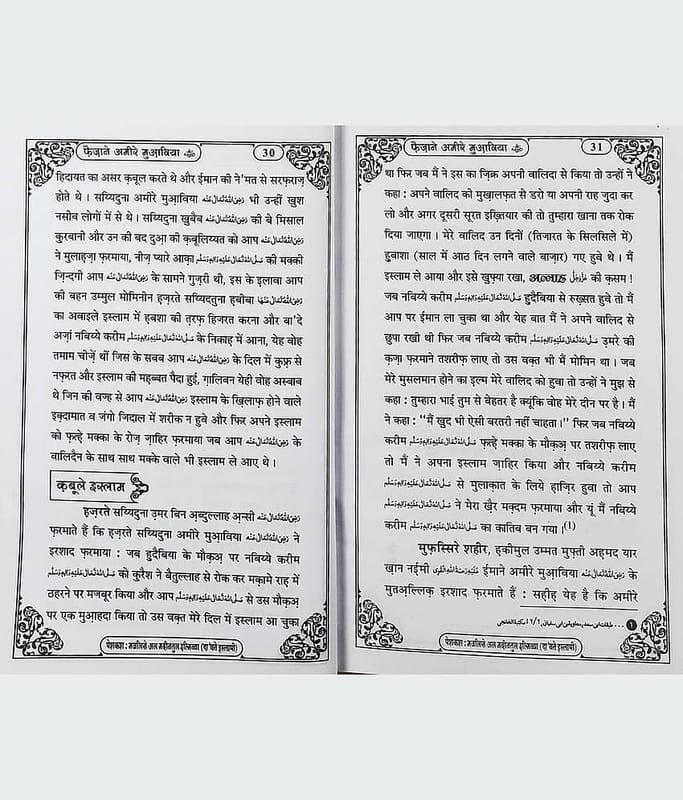 फ़ैज़ाने अमीरे मुआविया
30
हिदायत का असर क़बूल करते थे और ईमान की ने'मत से सरफ़राज़
होते थे । सय्यिदुना अमीरे मुआविया رَضِیَ اللّٰهُ تَعَالٰی عَنْهُ भी उन्हीं खुश
नसीब लोगों में से थे । सय्यिदुना खुबैब رَضِیَ اللّٰهُ تَعَالٰی عَنْهُ की बे मिसाल
कुरबानी और उन की बद दुआ की क़बूलिय्यत को आप رَضِیَ اللّٰهُ تَعَالٰی عَنْهُ
ने मुलाहज़ा फ़रमाया, नीज़ प्यारे आक़ा صَلَّی اللّٰهُ تَعَالٰی عَلَیْهِ وَاٰلِهٖ وَسَلَّم की मक्की
ज़िन्दगी आप رَضِیَ اللّٰهُ تَعَالٰی عَنْهُ के सामने गुज़री थी, इस के इलावा आप
की बहन उम्मुल मोमिनीन हज़रते सय्यिदतुना हबीबा رَضِیَ اللّٰهُ تَعَالٰی عَنْهَا
का अवाइले इस्लाम में हबशा की त़रफ़ हिजरत करना और बा'दे
अज़ां नबिय्ये करीम صَلَّی اللّٰهُ تَعَالٰی عَلَیْهِ وَاٰلِهٖ وَسَلَّم के निकाह में आना, येह वोह
तमाम चीज़ें थीं जिस के सबब आप رَضِیَ اللّٰهُ تَعَالٰی عَنْهُ के दिल में कुफ़्र से
नफ़रत और इस्लाम की महब्बत पैदा हुई, ग़ालिबन येही वोह अस्बाब
थे जिन की वज्ह से आप رَضِیَ اللّٰهُ تَعَالٰی عَنْهُ इस्लाम के ख़िलाफ़ होने वाले
इक़्दामात व जंगो जिदाल में शरीक न हुवे और फिर अपने इस्लाम
को फ़त्हे मक्का के रोज़ ज़ाहिर फ़रमाया जब आप رَضِیَ اللّٰهُ تَعَالٰی عَنْهُ के
वालिदैन के साथ साथ मक्के वाले भी इस्लाम ले आए थे ।
क़बूले इस्लाम
हज़रते सय्यिदुना उमर बिन अब्दुल्लाह अन्सी رَضِیَ اللّٰهُ تَعَالٰی عَنْهُ
फ़रमाते हैं कि हज़रते सय्यिदुना अमीरे मुआविया رَضِیَ اللّٰهُ تَعَالٰی عَنْهُ ने
इरशाद फ़रमाया : जब हुदैबिया के मौक़अ़ पर नबिय्ये करीम
صَلَّی اللّٰهُ تَعَالٰی عَلَیْهِ وَاٰلِهٖ وَسَلَّم को कुरैश ने बैतुल्लाह से रोक कर मक़ामे राह में
ठहरने पर मजबूर किया और आप صَلَّی اللّٰهُ تَعَالٰی عَلَیْهِ وَاٰلِهٖ وَسَلَّم से उस मौक़अ़
पर एक मुआहदा किया तो उस वक़्त मेरे दिल में इस्लाम आ चुका
पेशकश : मजलिसे अल मदीनतुल इल्मिय्या (दा'वते इस्लामी)
फ़ैज़ाने अमीरे मुआविया
31
था फिर जब मैं ने इस का ज़िक्र अपनी वालिदा से किया तो उन्हों ने
कहा : अपने वालिद की मुख़ालफ़त से डरो या अपनी राह जुदा कर
लो और अगर दूसरी सूरत इख़्तियार की तो तुम्हारा खाना तक रोक
दिया जाएगा । मेरे वालिद उन दिनों (तिजारत के सिलसिले में)
हुबाशा (साल में आठ दिन लगने वाले बाज़ार) गए हुवे थे । मैं
इस्लाम ले आया और इसे खुफ़्या रखा, अल्लाह عَزَّوَجَلَّ की क़सम !
जब नबिय्ये करीम صَلَّی اللّٰهُ تَعَالٰی عَلَیْهِ وَاٰلِهٖ وَسَلَّم हुदैबिया से रुख़्सत हुवे तो मैं
आप पर ईमान ला चुका था और येह बात मैं ने अपने वालिद से
छुपा रखी थी फिर जब नबिय्ये करीम صَلَّی اللّٰهُ تَعَالٰی عَلَیْهِ وَاٰلِهٖ وَسَلَّم उमरे की
क़ज़ा फ़रमाने तशरीफ़ लाए तो उस वक़्त भी मैं मोमिन था । जब
मेरे मुसलमान होने का इल्म मेरे वालिद को हुवा तो उन्हों ने मुझ से
कहा : तुम्हारा भाई तुम से बेहतर है क्यूंकि वोह मेरे दीन पर है । मैं
ने कहा : “मैं खुद भी ऐसी बरतरी नहीं चाहता ।” फिर जब नबिय्ये
करीम صَلَّی اللّٰهُ تَعَالٰی عَلَیْهِ وَاٰلِهٖ وَسَلَّم फ़त्हे मक्का के मौक़अ़ पर तशरीफ़ लाए
तो मैं ने अपना इस्लाम ज़ाहिर किया और नबिय्ये करीम
صَلَّی اللّٰهُ تَعَالٰی عَلَیْهِ وَاٰلِهٖ وَسَلَّم से मुलाक़ात के लिये हाज़िर हुवा तो आप
صَلَّی اللّٰهُ تَعَالٰی عَلَیْهِ وَاٰلِهٖ وَسَلَّم ने मेरा ख़ैर मक़्दम फ़रमाया और यूं मैं नबिय्ये
करीम صَلَّی اللّٰهُ تَعَالٰی عَلَیْهِ وَاٰلِهٖ وَسَلَّم का कातिब बन गया ।(1)
मुफ़स्सिरे शहीर, हकीमुल उम्मत मुफ़्ती अहमद यार
ख़ान नईमी عَلَیْهِ رَحْمَةُ اللّٰهِ الْقَوِی ईमाने अमीरे मुआविया رَضِیَ اللّٰهُ تَعَالٰی عَنْهُ के
मुतअ़ल्लिक़ इरशाद फ़रमाते हैं : सह़ीह़ येह है कि अमीरे
1 ... طبقات ابن سعد، معاویة بن ابی سفیان،
पेशकश : मजलिसे अल मदीनतुल इल्मिय्या (दा'वते इस्लामी)